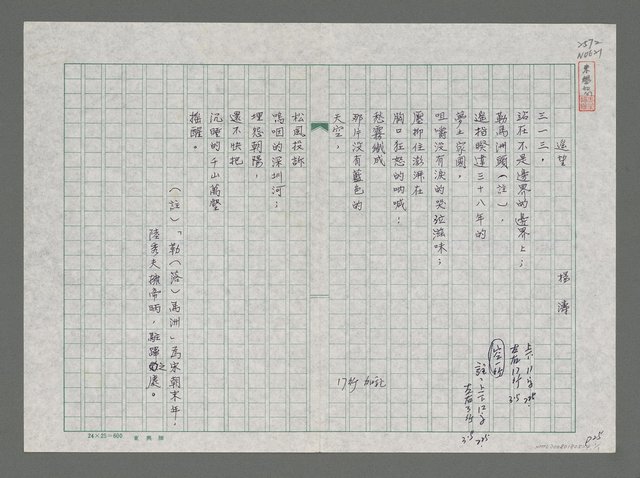 遙望
楊濤
三一三，
站在不是邊界的邊界上；
勒馬洲頭（註），
遙指暌違三十八年的
夢土家園，
咀嚼沒有淚的哭泣滋味；
壓抑住澎湃在
胸口狂怒的吶喊！
愁霧織成
那片沒有藍色的
天空，
松風投訴
嗚咽的深圳河；
埋怨朝陽，
還不快把
沉睡的千山萬壑
搖醒。
（註）「勒（落）馬洲」為宋朝末年，
陸秀夫擁帝昺，駐蹕之處。
17行 加註
空一行
上下11字
左右17行
註：上下12字
左右3行
24×25=600